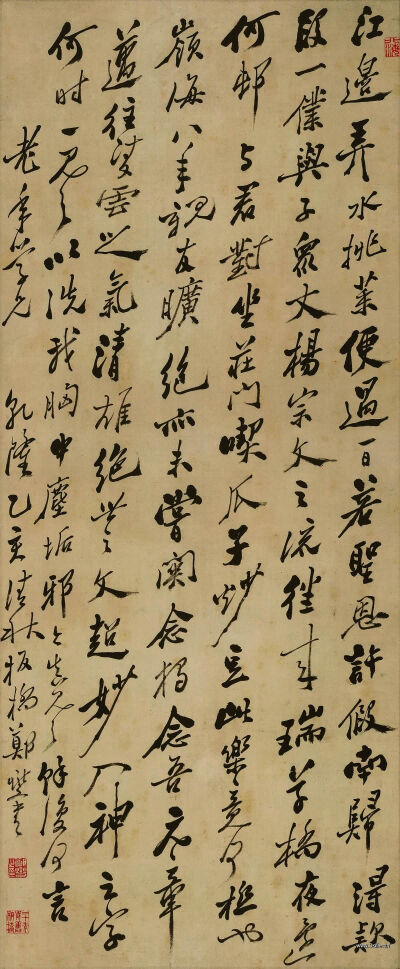 江邊弄水挑菜便過一日若聖恩許假南歸得款
段一僕與子眾丈楊宗文之流往來瑞草橋夜還
何邨與君對坐莊門喫瓜子炒豆此樂竟何極也
嶺海八年親友曠絕亦未嘗關念獨念吾元章
邁往凌雲之氣清雄絕世之文超妙入神之字
何時一見之以洗我胸中塵垢邪今真見之餘復何言
老年學兄 乾隆乙亥清秋板橋鄭燮書